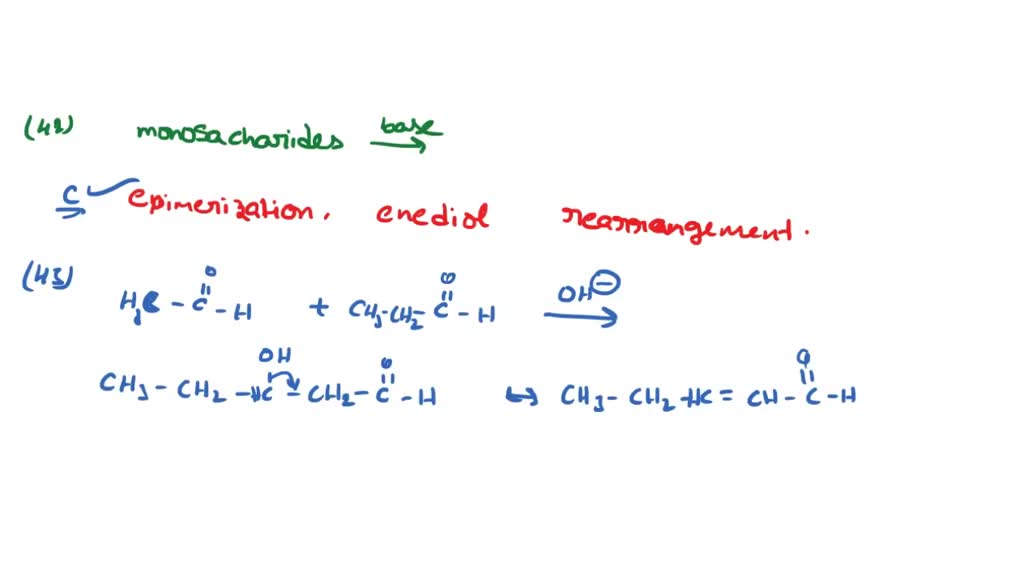 (42) monosacharides base →
C ✓ epimerization, enediol rearrangement.
(43)
O O
H3C - C - H + CH3-CH2-C - H OH⊖ →
OH O O
CH3 - CH2 - HC - CH2 - C - H ↔ CH3 - CH2 - HC = CH - C - H